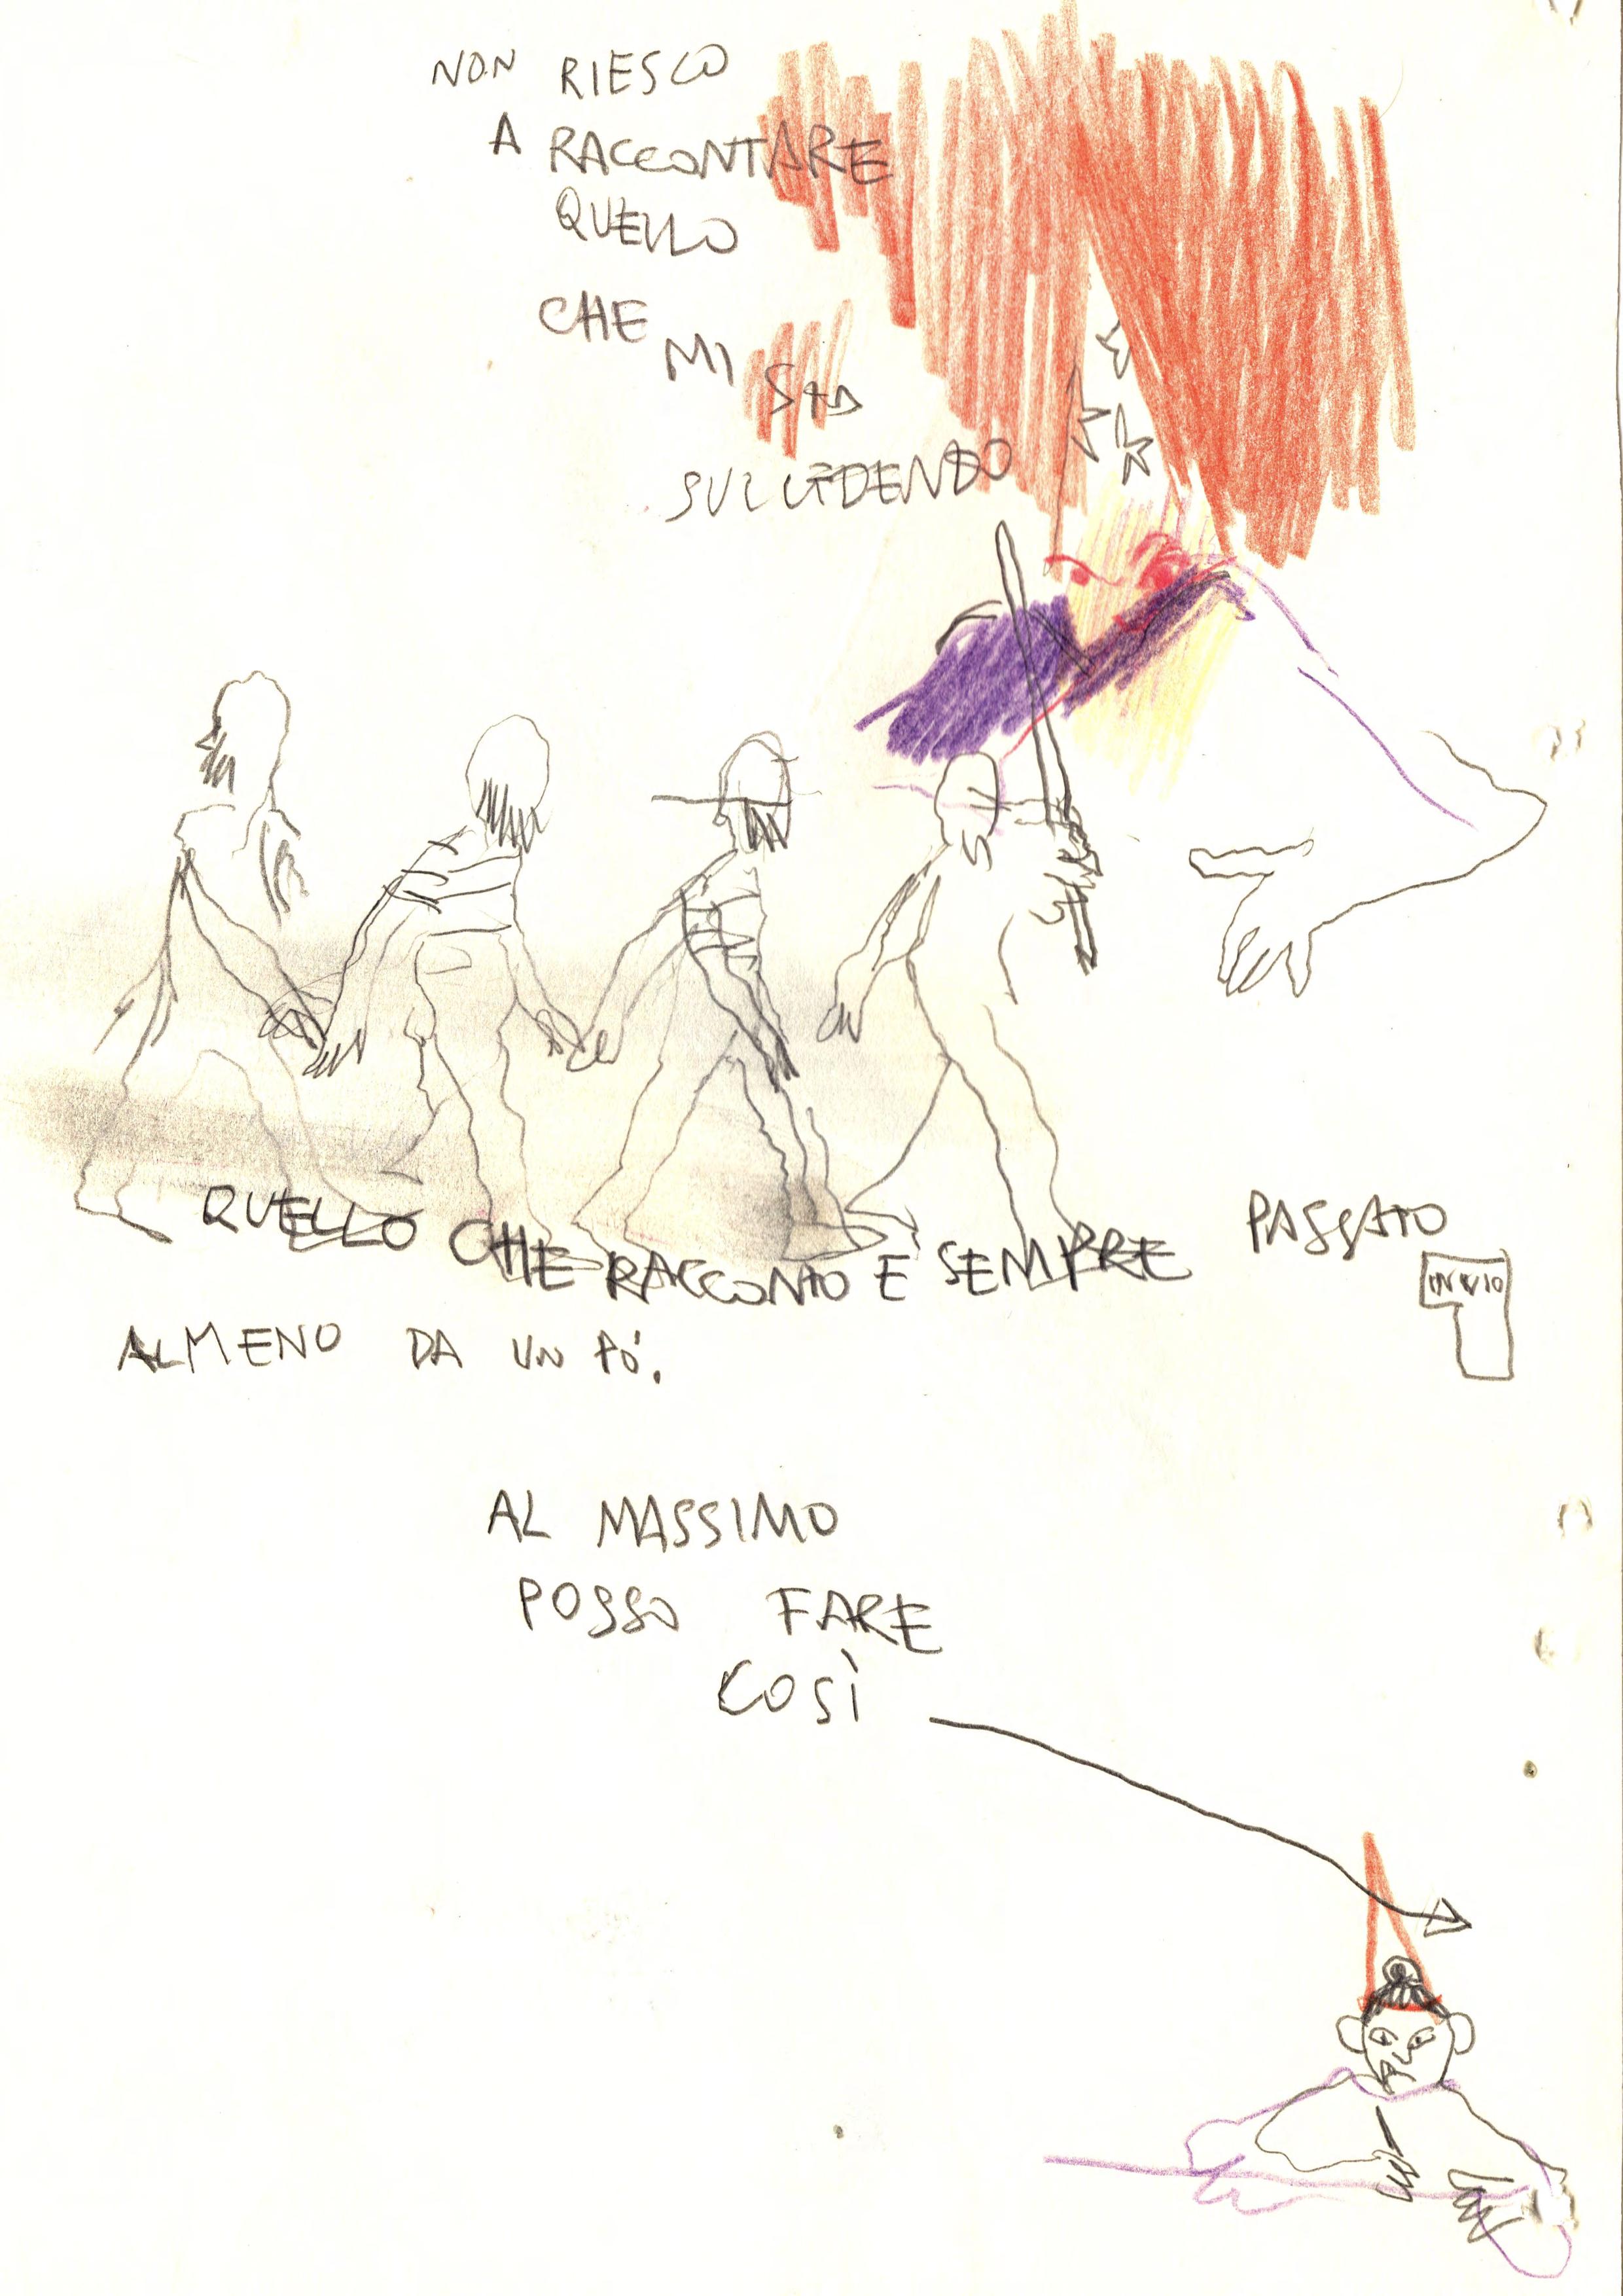 NON RIESCO
A RACCONTARE
QUELLO
CHE MI STA
SUCCEDENDO
QUELLO CHE RACCONTO E SEMPRE PASSATO
INVIO
ALMENO DA UN PO'.
AL MASSIMO
POSSO FARE
COSÌ